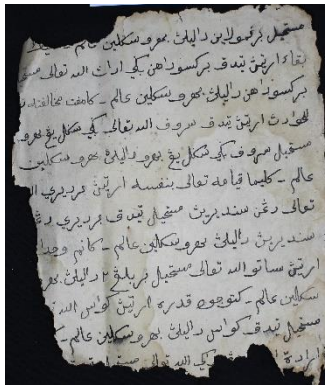 مستحيل برڤرمولاءن دليلڽ بهرو سكلين عالم
بقاء ارتيڽ تيدق بركسوداهن بكي ذات الله تعالى
بركسوداهن دليلڽ بهرو سكلين عالم - كامفت مخالفته
للحوادث ارتيڽ تيدق سروف الله تعالى بكي سكلين يڠ بهرو
مستحيل سروف بكي سكلين يڠ بهرو دليلڽ بهرو سكلين
عالم - كليما قيامه تعالى بنفسه ارتيڽ برديري
تعالى دڠن سنديرين مستحيل تيدق برديري
سنديرين دليلڽ بهرو سكلين عالم - كانم
ارتيڽ ساتو الله تعالى مستحيل بربيلڠ٢ دليلڽ
سكلين عالم - كتوجوه قدرة ارتيڽ كواس الله
مستحيل تيدق كواس دليلڽ بهرو سكلين عالم -
ارادة بكي الله تعالى